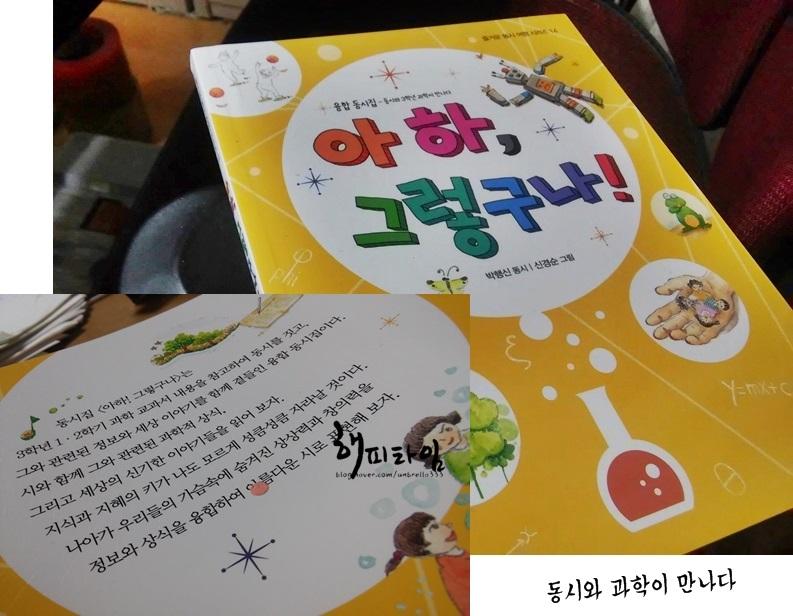 즐거운 동시 여행 시리즈 14
융합 동시집 - 동시와 3학년 과학이 만나다
아하,
그렇구나!
박행신 동시 | 신경순 그림
y=mx+c
동시집 <아하! 그렇구나>는
3학년 1 · 2학기 과학 교과서 내용을 참고하여 동시를 짓고,
그와 관련된 정보와 세상 이야기를 함께 곁들인 융합 동시집이다.
시와 함께 그와 관련된 과학적 상식,
그리고 세상의 신기한 이야기들을 읽어 보자.
지식과 지혜의 키가 나도 모르게 성큼성큼 자라날 것이다.
나아가 우리들의 가슴속에 숨겨진 상상력과 창의력을
정보와 상식을 융합하여 아름다운 시로 표현해 보자.
해피타임
blog.naver.com/unbrello333
동시와 과학이 만나다